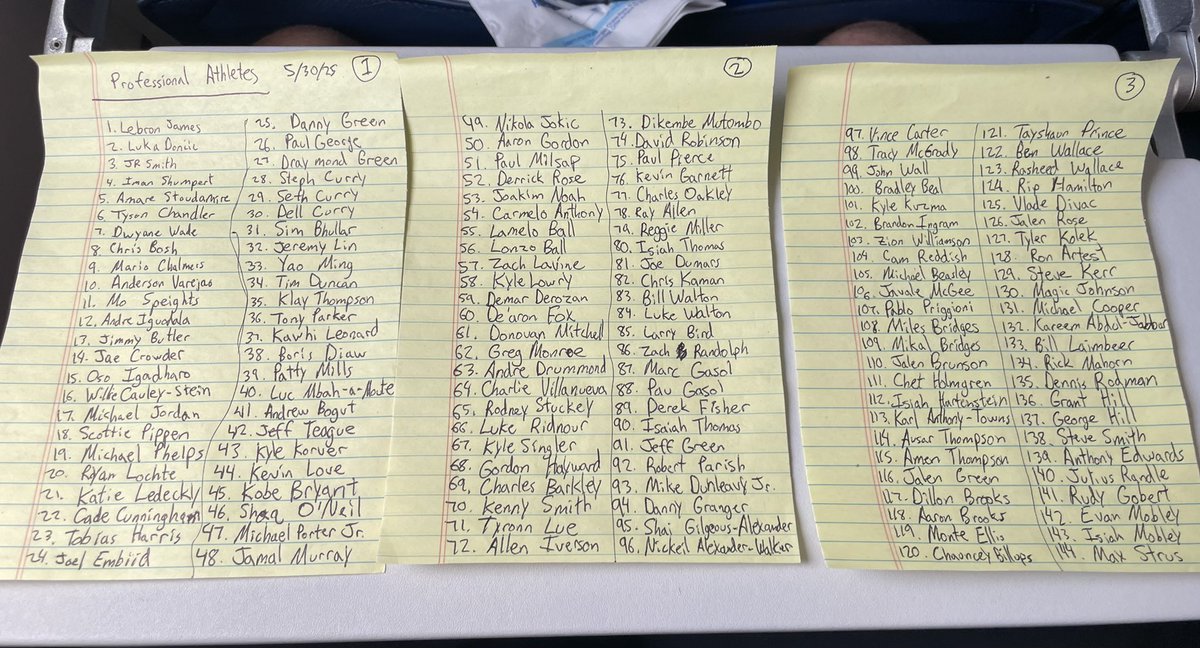 Professional Athletes 5/30/25 1
1. Lebron James
2. Luka Doncic
3. JR Smith
4. Iman Shumpert
5. Amare Stoudamire
6. Tyson Chandler
7. Dwyane Wade
8. Chris Bosh
9. Mario Chalmers
10. Anderson Varejao
11. Mo Speights
12. Andre Iguodala
13. Jimmy Butler
14. Jae Crowder
15. Oso Igadharo
16. Willie Cauley-Stein
17. Michael Jordan
18. Scottie Pippen
19. Michael Phelps
20. Ryan Lochte
21. Katie Ledeckly
22. Cade Cunningham
23. Tobias Harris
24. Joel Embiid
25. Danny Green
26. Paul George
27. Draymond Green
28. Steph Curry
29. Seth Curry
30. Dell Curry
31. Sim Bhullar
32. Jeremy Lin
33. Yao Ming
34. Tim Duncan
35. Klay Thompson
36. Tony Parker
37. Kawhi Leonard
38. Boris Diaw
39. Patty Mills
40. Luc Mbah-a-Moute
41. Andrew Bogut
42. Jeff Teague
43. Kyle Korver
44. Kevin Love
45. Kobe Bryant
46. Shaq O'Neil
47. Michael Porter Jr.
48. Jamal Murray
2
49. Nikola Jokic
50. Aaron Gordon
51. Paul Milsap
52. Derrick Rose
53. Joakim Noah
54. Carmelo Anthony
55. Lamelo Ball
56. Lonzo Ball
57. Zach Lavine
58. Kyle Lowry
59. Demar Derozan
60. De'aron Fox
61. Donovan Mitchell
62. Greg Monroe
63. Andre Drummond
64. Charlie Villanueva
65. Rodney Stuckey
66. Luke Ridnour
67. Kyle Singler
68. Gordon Hayward
69. Charles Barkley
70. Kenny Smith
71. Tyronn Lue
72. Allen Iverson
73. Dikembe Mutombo
74. David Robinson
75. Paul Pierce
76. Kevin Garnett
77. Charles Oakley
78. Ray Allen
79. Reggie Miller
80. Isiah Thomas
81. Joe Dumars
82. Chris Kaman
83. Bill Walton
84. Luke Walton
85. Larry Bird
86. Zach Randolph
87. Marc Gasol
88. Pau Gasol
89. Derek Fisher
90. Isaiah Thomas
91. Jeff Green
92. Robert Parish
93. Mike Dunleavy Jr.
94. Danny Granger
95. Shai Gilgeous-Alexander
96. Nickeil Alexander-Walker
3
97. Vince Carter
98. Tracy McGrady
99. John Wall
100. Bradley Beal
101. Kyle Kuzma
102. Brandon Ingram
103. Zion Williamson
104. Cam Reddish
105. Michael Beasley
106. Javale McGee
107. Pablo Priggioni
108. Miles Bridges
109. Mikal Bridges
110. Jalen Brunson
111. Chet Holmgren
112. Isiah Hartenstein
113. Karl Anthony-Towns
114. Ausar Thompson
115. Amen Thompson
116. Jalen Green
117. Dillon Brooks
118. Aaron Brooks
119. Monte Ellis
120. Chauncey Billups
121. Tayshaun Prince
122. Ben Wallace
123. Rasheed Wallace
124. Rip Hamilton
125. Vlade Divac
126. Jalen Rose
127. Tyler Kolek
128. Ron Artest
129. Steve Kerr
130. Magic Johnson
131. Michael Cooper
132. Kareem Abdul-Jabbar
133. Bill Laimbeer
134. Rick Mahorn
135. Dennis Rodman
136. Grant Hill
137. George Hill
138. Steve Smith
139. Anthony Edwards
140. Julius Randle
141. Rudy Gobert
142. Evan Mobley
143. Isiah Mobley
144. Max Strus